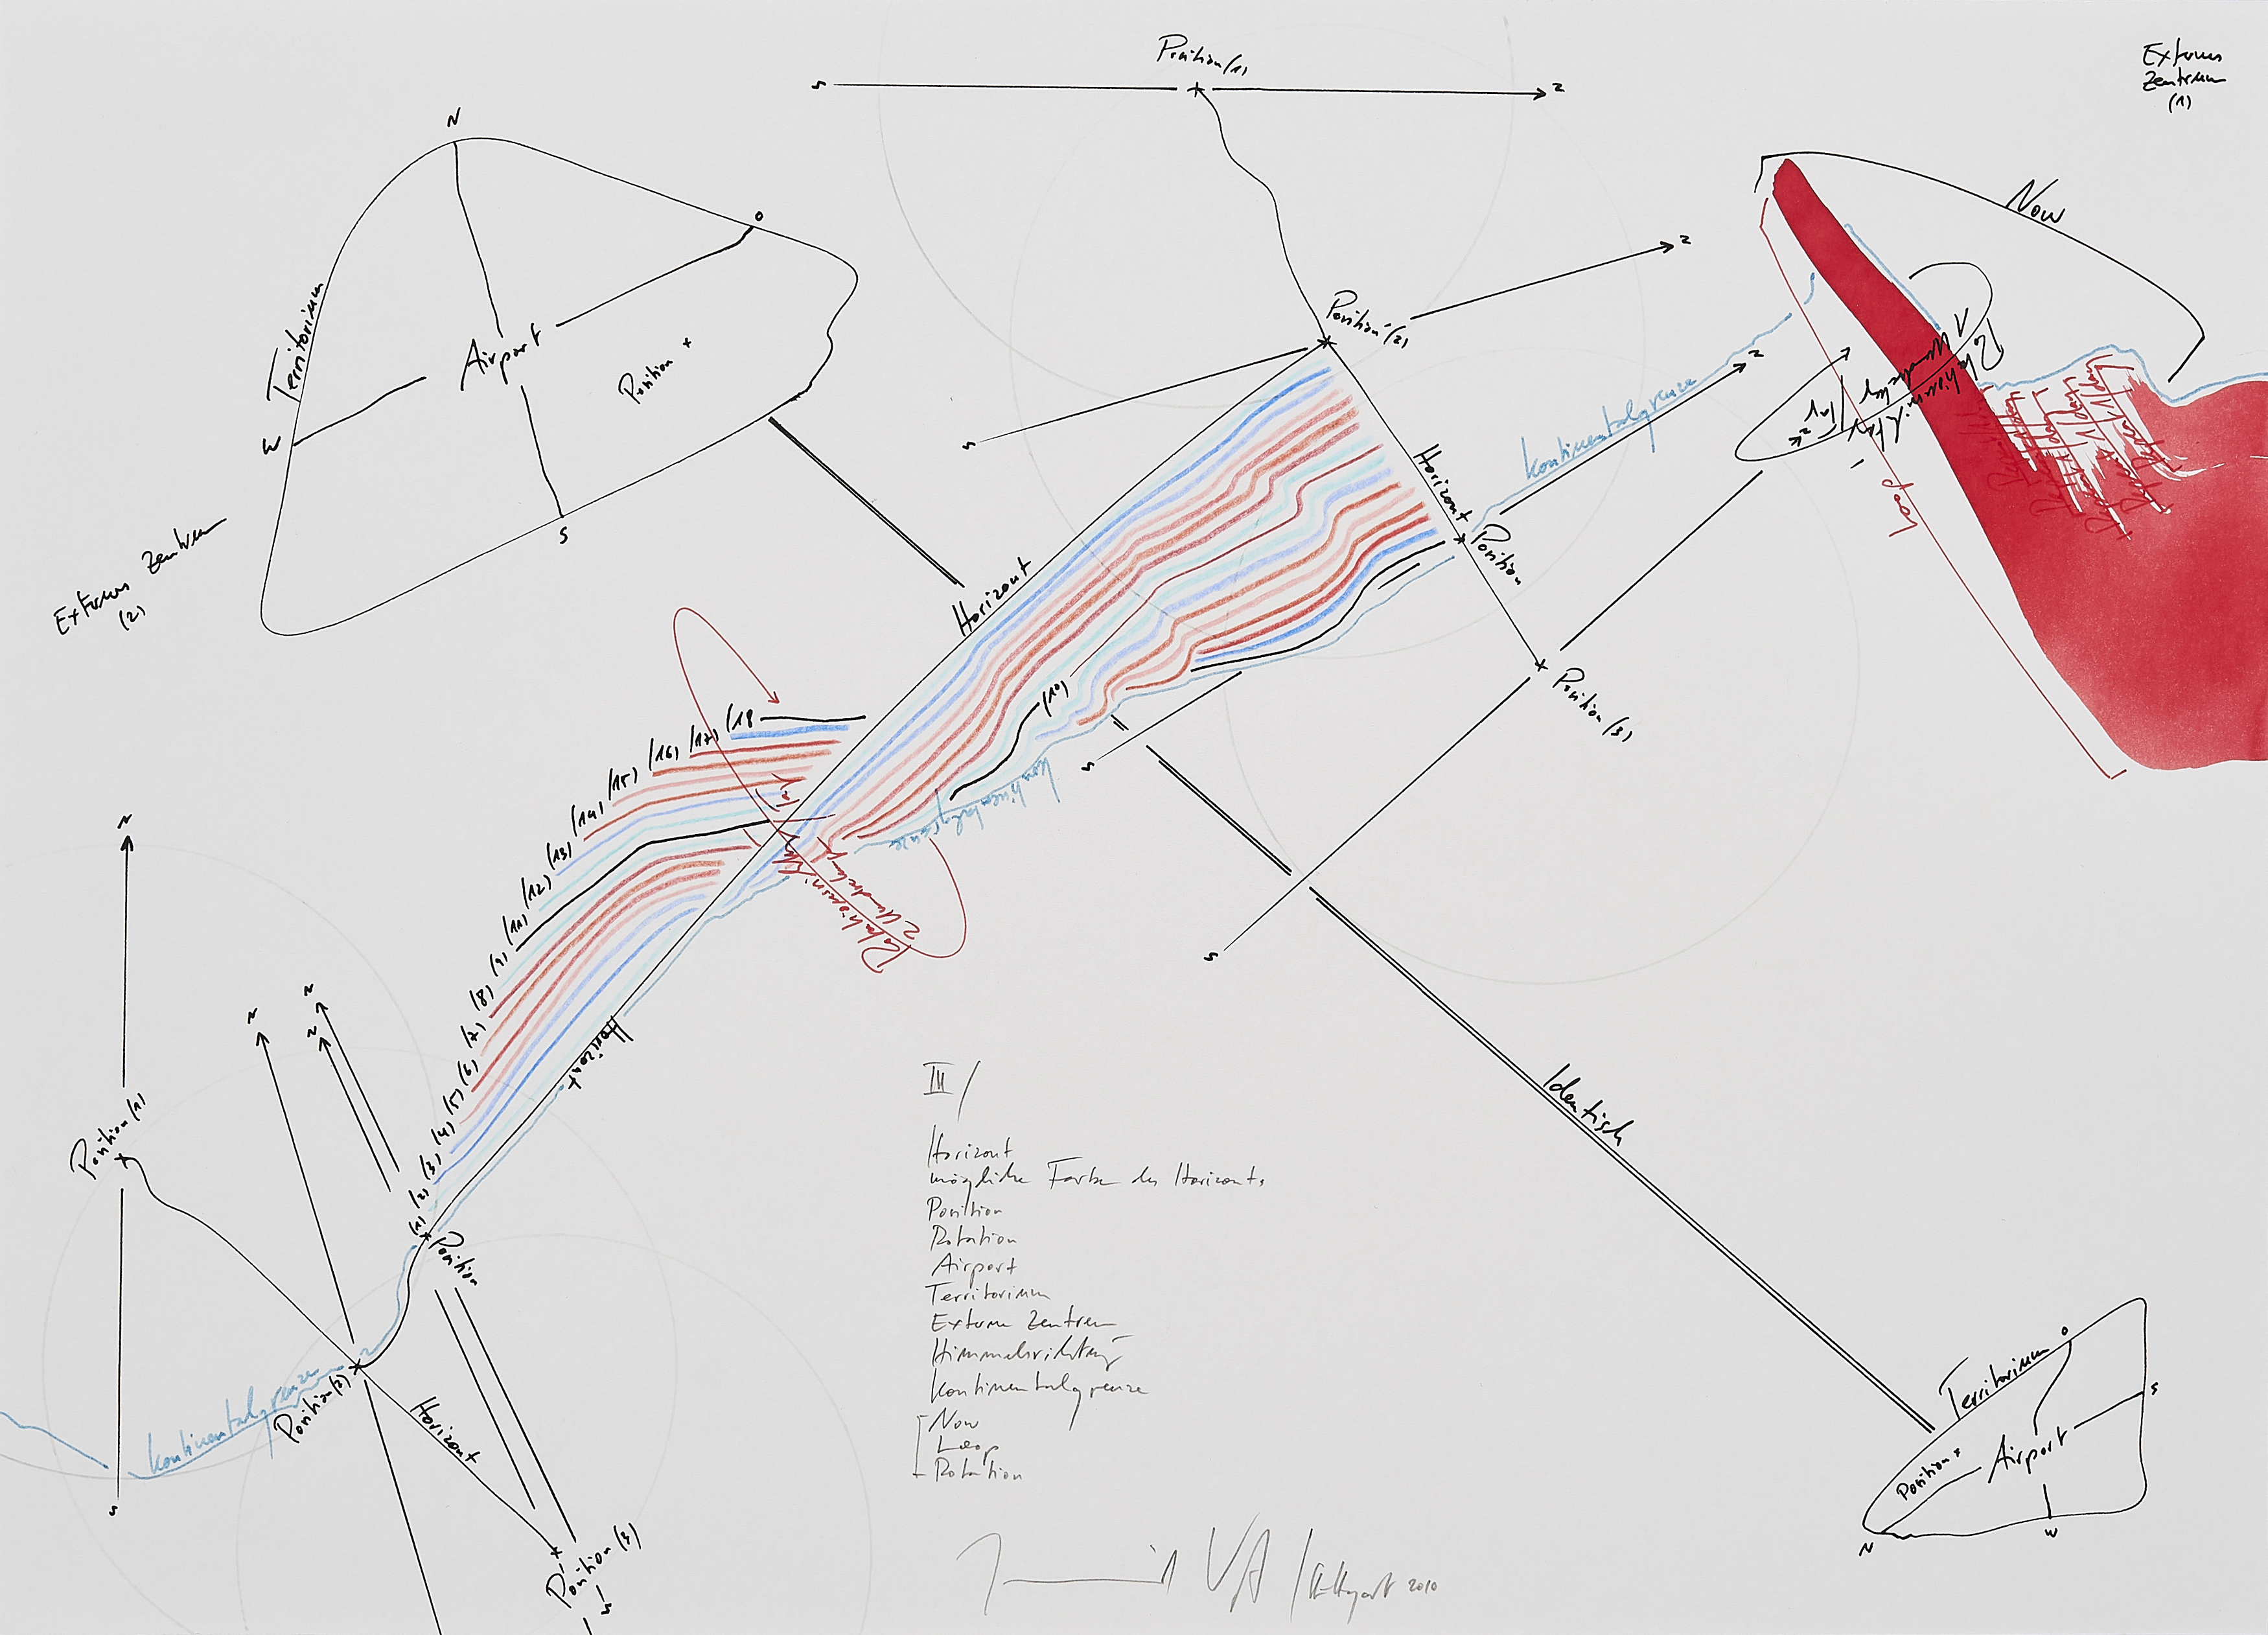 Position (1)
S
N
Externes
Zentrum
(1)
N
O
Territorium
Airport
Position
W
S
Externes Zentrum
(2)
Now
N
Position (2)
S
Horizont
Kontinentalgrenze
N
Position
Horizont
Position (3)
S
S
Loop
(10)
Kontinentalgrenze
(18
(17)
(16)
(15)
(14)
(13)
(12)
(11)
(9)
(8)
(7)
(6)
(5)
(4)
(3)
(2)
(1)
2 Umdrehung
Horizont
N
N
N
N
Position (1)
Position
Kontinentalgrenze
Position (2)
Horizont
S
Position (3)
S
III/
Horizont
mögliche Farbe des Horizonts
Position
Rotation
Airport
Territorium
Externe Zentren
Himmelsrichtung
Kontinentalgrenze
Now
Loop
Rotation
Identisch
Territorium
O
S
Position
Airport
N
W
/Stuttgart 2010